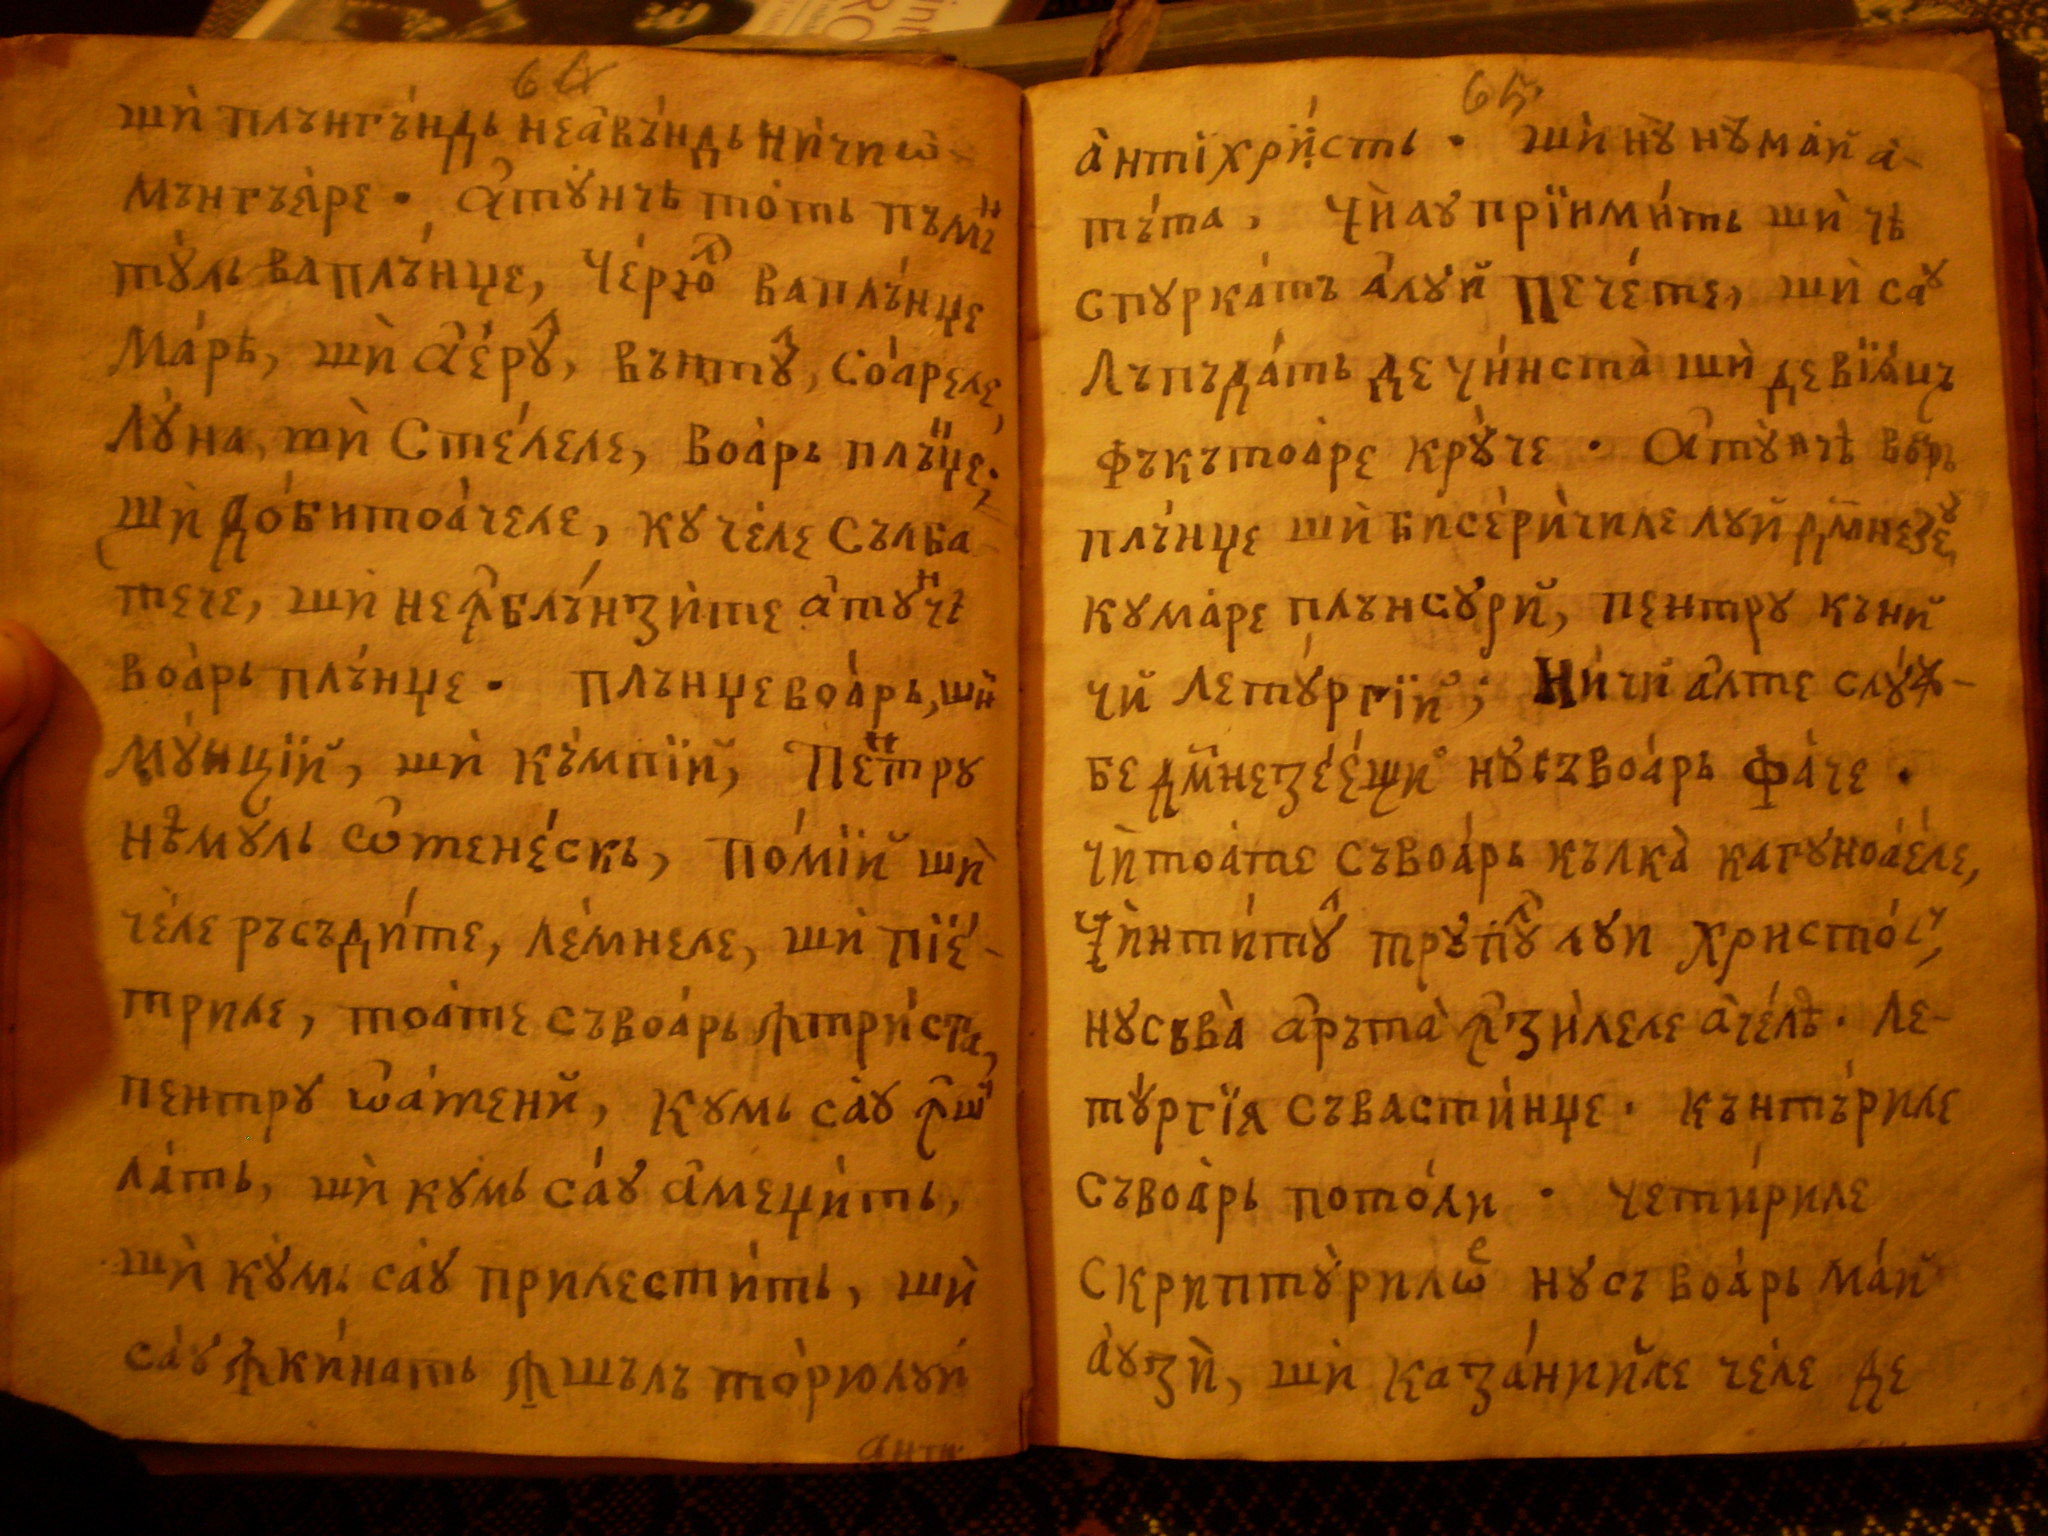 64
шѝ плънгъ́ндь неа҆въ́ндь ни́чи ѡ҆-
мънгъе́ре · А҆тꙋ́нчѣ то́ть пъмⷩъ
тꙋ́ль ва плъ́нџе, че́рюⷧ ва плъ́нџе
Ма́рѣ, шѝ а҆е́рꙋⷧ, вънтꙋⷧ, Соа́реле,
Лꙋ́на, шѝ Сте́леле, воа́рь плъⷩџе;
шѝ до́битоа́челе, кꙋ че́ле Сълба
тече, шѝ неꙟблъ́нзи́те а҆тꙋⷩчѣ
воа́рь плъ́нџе · плънџе воа́рь, шѝ
Мꙋ́нцїй, шѝ къ́мпїй, Пеⷩтрꙋ
нѣ́мꙋль ѡ҆менéскь, по́мїй шѝ
че́ле ръсъди́те, ле́мнеле, шѝ пїе́-
триле, тоа́те съ воа́рь ꙟтри́ста,
пентрꙋ ѡ҆а́менй, кꙋмь са́ꙋ ꙟшї
ла́ть, шѝ кꙋ́мь са́ꙋ а҆меци́ть,
шѝ кꙋ́мь са́ꙋ прилести́ть, шѝ
са́ꙋ ꙟки́нать ꙟшълъто́рюлꙋй
анти
65
а҆нтїхри́сть · шѝ нꙋ нꙋма́й а҆-
тъ́та, чѝ аꙋ прїими́ть шѝ чѣ
спꙋрка́тъ а҆лꙋ́й Пече́те, шѝ саꙋ́
Лъпъда́ть де чи́нста̀ шѝ де вїа́цъ
фъкътоа́ре крꙋ́че · А҆тꙋ́нчѣ вѡрь
плъ́нџе шѝ бисе́ри́чиле лꙋй дм҃незеꙋ́,
кꙋ ма́ре плънсꙋ́рй, пентрꙋ къ ни
чй летꙋ́ргїй; Ни́чй а҆лте слꙋ́ж-
бе дм҃незее́щй нꙋ съ воа́рь фа́че ·
чѝ тоа́те съ воа́рь кълка̀ ка гꙋноа́еле,
Чѝнти́тꙋⷧ трꙋ́пꙋⷧ лꙋи Христо́с,
нꙋ съ ва̀ а҆ръта̀ ꙟ зи́леле а҆че́лѣ · Ле-
тꙋ́ргїя съ ва сти́нџе · кънтъ́риле
съ воа́рь пото́ли · четири́ле
Скриптꙋ́рилѡⷬ нꙋ съ воа́рь ма́й
а҆ꙋзѝ, шѝ каза́ниӥле че́ле де